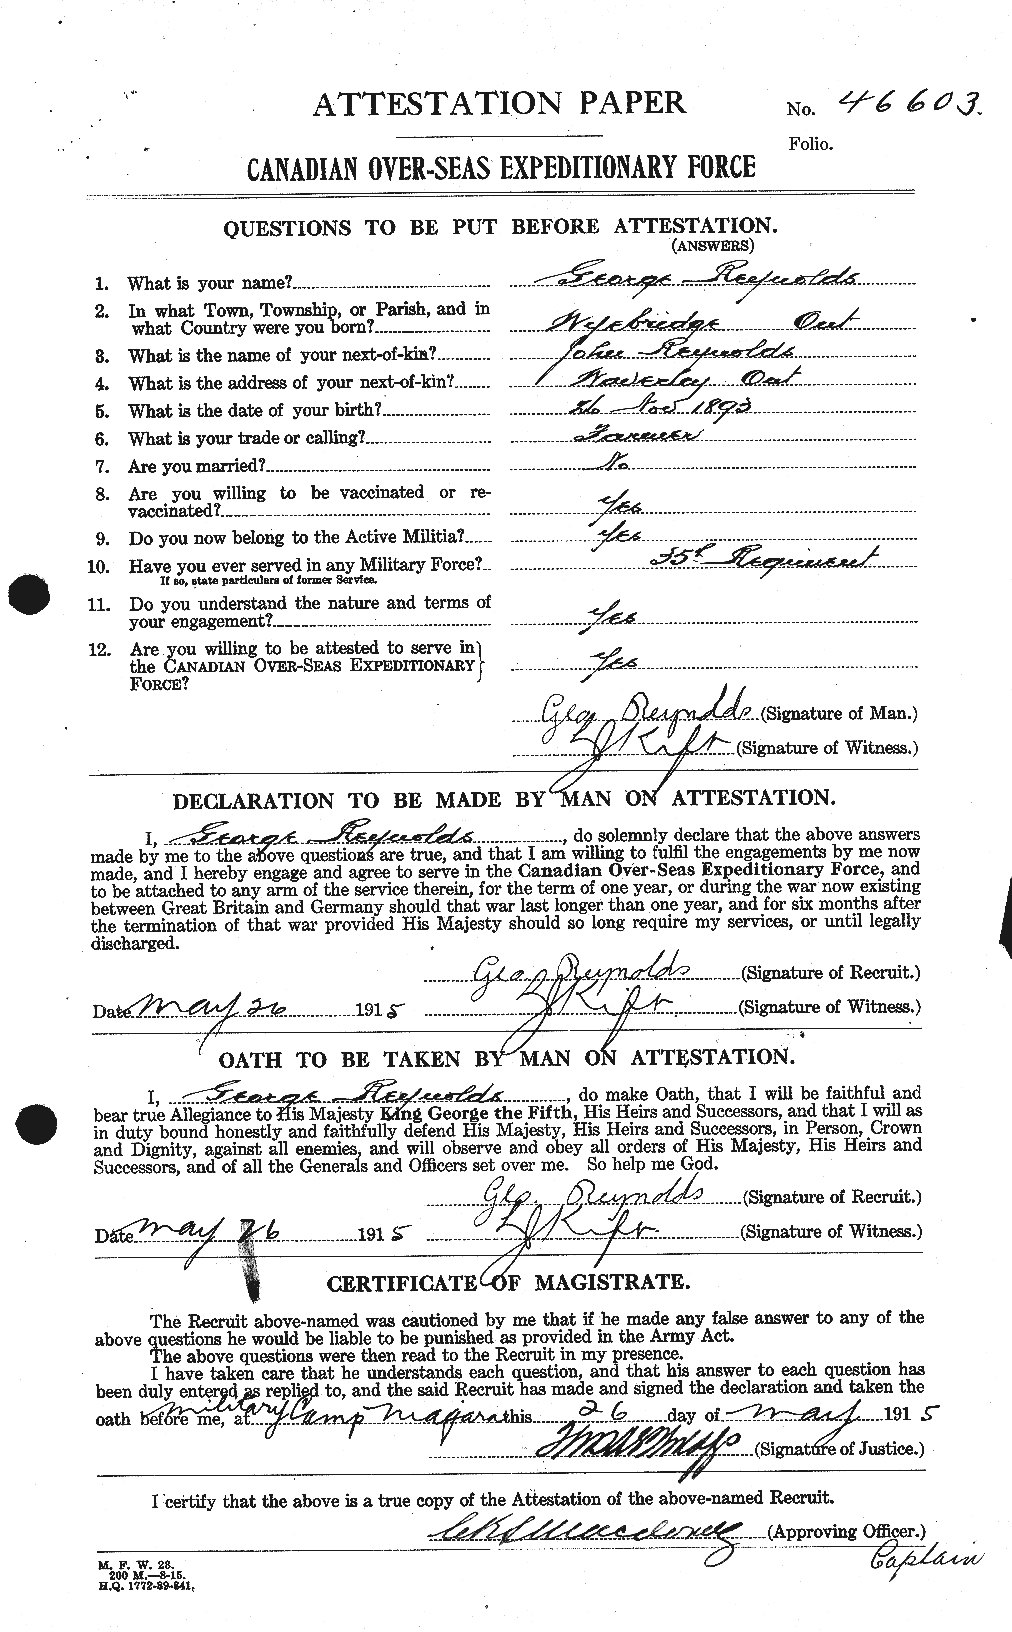 ATTESTATION PAPER
No. 46603.
Folio.
CANADIAN OVER-SEAS EXPEDITIONARY FORCE
QUESTIONS TO BE PUT BEFORE ATTESTATION.
(ANSWERS)
1. What is your name? George Reynolds
2. In what Town, Township, or Parish, and in
what Country were you born? Wyebridge Ont
3. What is the name of your next-of-kin? John Reynolds
4. What is the address of your next-of-kin? Waverley Ont
5. What is the date of your birth? 26 Nov 1893
6. What is your trade or calling? Farmer
7. Are you married? No
8. Are you willing to be vaccinated or re-
vaccinated? Yes
9. Do you now belong to the Active Militia? Yes
10. Have you ever served in any Military Force? 35th Regiment
If so, state particulars of former Service.
11. Do you understand the nature and terms of
your engagement? Yes
12. Are you willing to be attested to serve in
the CANADIAN OVER-SEAS EXPEDITIONARY Yes
FORCE?
Geo. Reynolds (Signature of Man.)
Kift (Signature of Witness.)
DECLARATION TO BE MADE BY MAN ON ATTESTATION.
I, George Reynolds, do solemnly declare that the above answers
made by me to the above questions are true, and that I am willing to fulfil the engagements by me now
made, and I hereby engage and agree to serve in the Canadian Over-Seas Expeditionary Force, and
to be attached to any arm of the service therein, for the term of one year, or during the war now existing
between Great Britain and Germany should that war last longer than one year, and for six months after
the termination of that war provided His Majesty should so long require my services, or until legally
discharged.
Geo. Reynolds (Signature of Recruit.)
Date May 26 1915 Kift (Signature of Witness.)
OATH TO BE TAKEN BY MAN ON ATTESTATION.
I, George Reynolds, do make Oath, that I will be faithful and
bear true Allegiance to His Majesty King George the Fifth, His Heirs and Successors, and that I will as
in duty bound honestly and faithfully defend His Majesty, His Heirs and Successors, in Person, Crown
and Dignity, against all enemies, and will observe and obey all orders of His Majesty, His Heirs and
Successors, and of all the Generals and Officers set over me. So help me God.
Geo. Reynolds (Signature of Recruit.)
Date May 26 1915 Kift (Signature of Witness.)
CERTIFICATE OF MAGISTRATE.
The Recruit above-named was cautioned by me that if he made any false answer to any of the
above questions he would be liable to be punished as provided in the Army Act.
The above questions were then read to the Recruit in my presence.
I have taken care that he understands each question, and that his answer to each question has
been duly entered as replied to, and the said Recruit has made and signed the declaration and taken the
oath before me, at Military Camp Niagara this 26 day of May 1915
(Signature of Justice.)
I certify that the above is a true copy of the Attestation of the above-named Recruit.
(Approving Officer.)
Captain
M. F. W. 23.
200 M.—3-15.
H.Q. 1772-39-841.